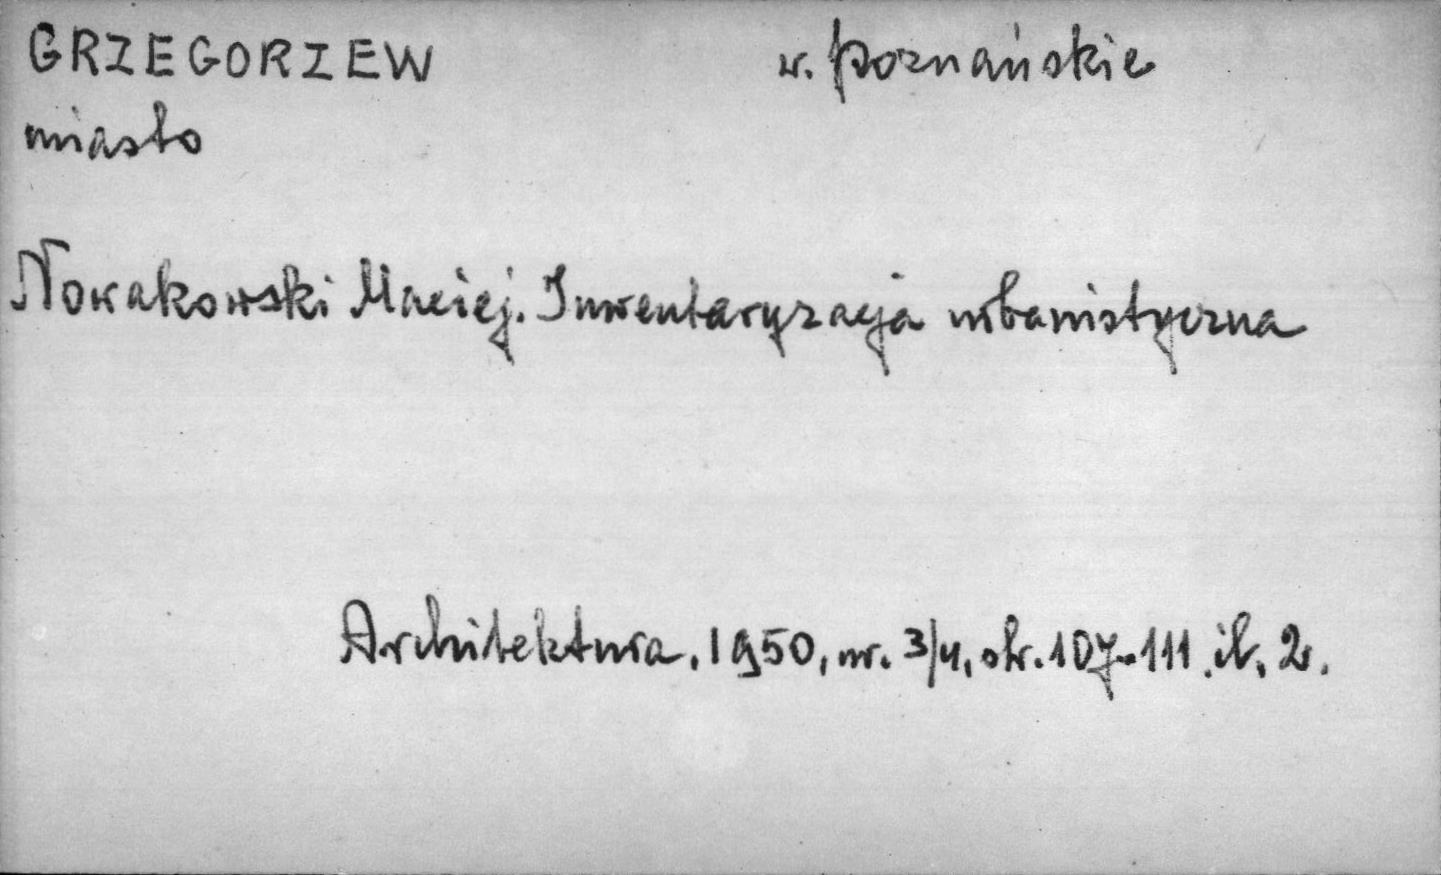 GRZEGORZEW w. poznańskie
miasto
Nowakowski Maciej. Inwentaryzacja urbanistyczna
Architektura, 1950, nr. 3/4, str. 107-111. il. 2.